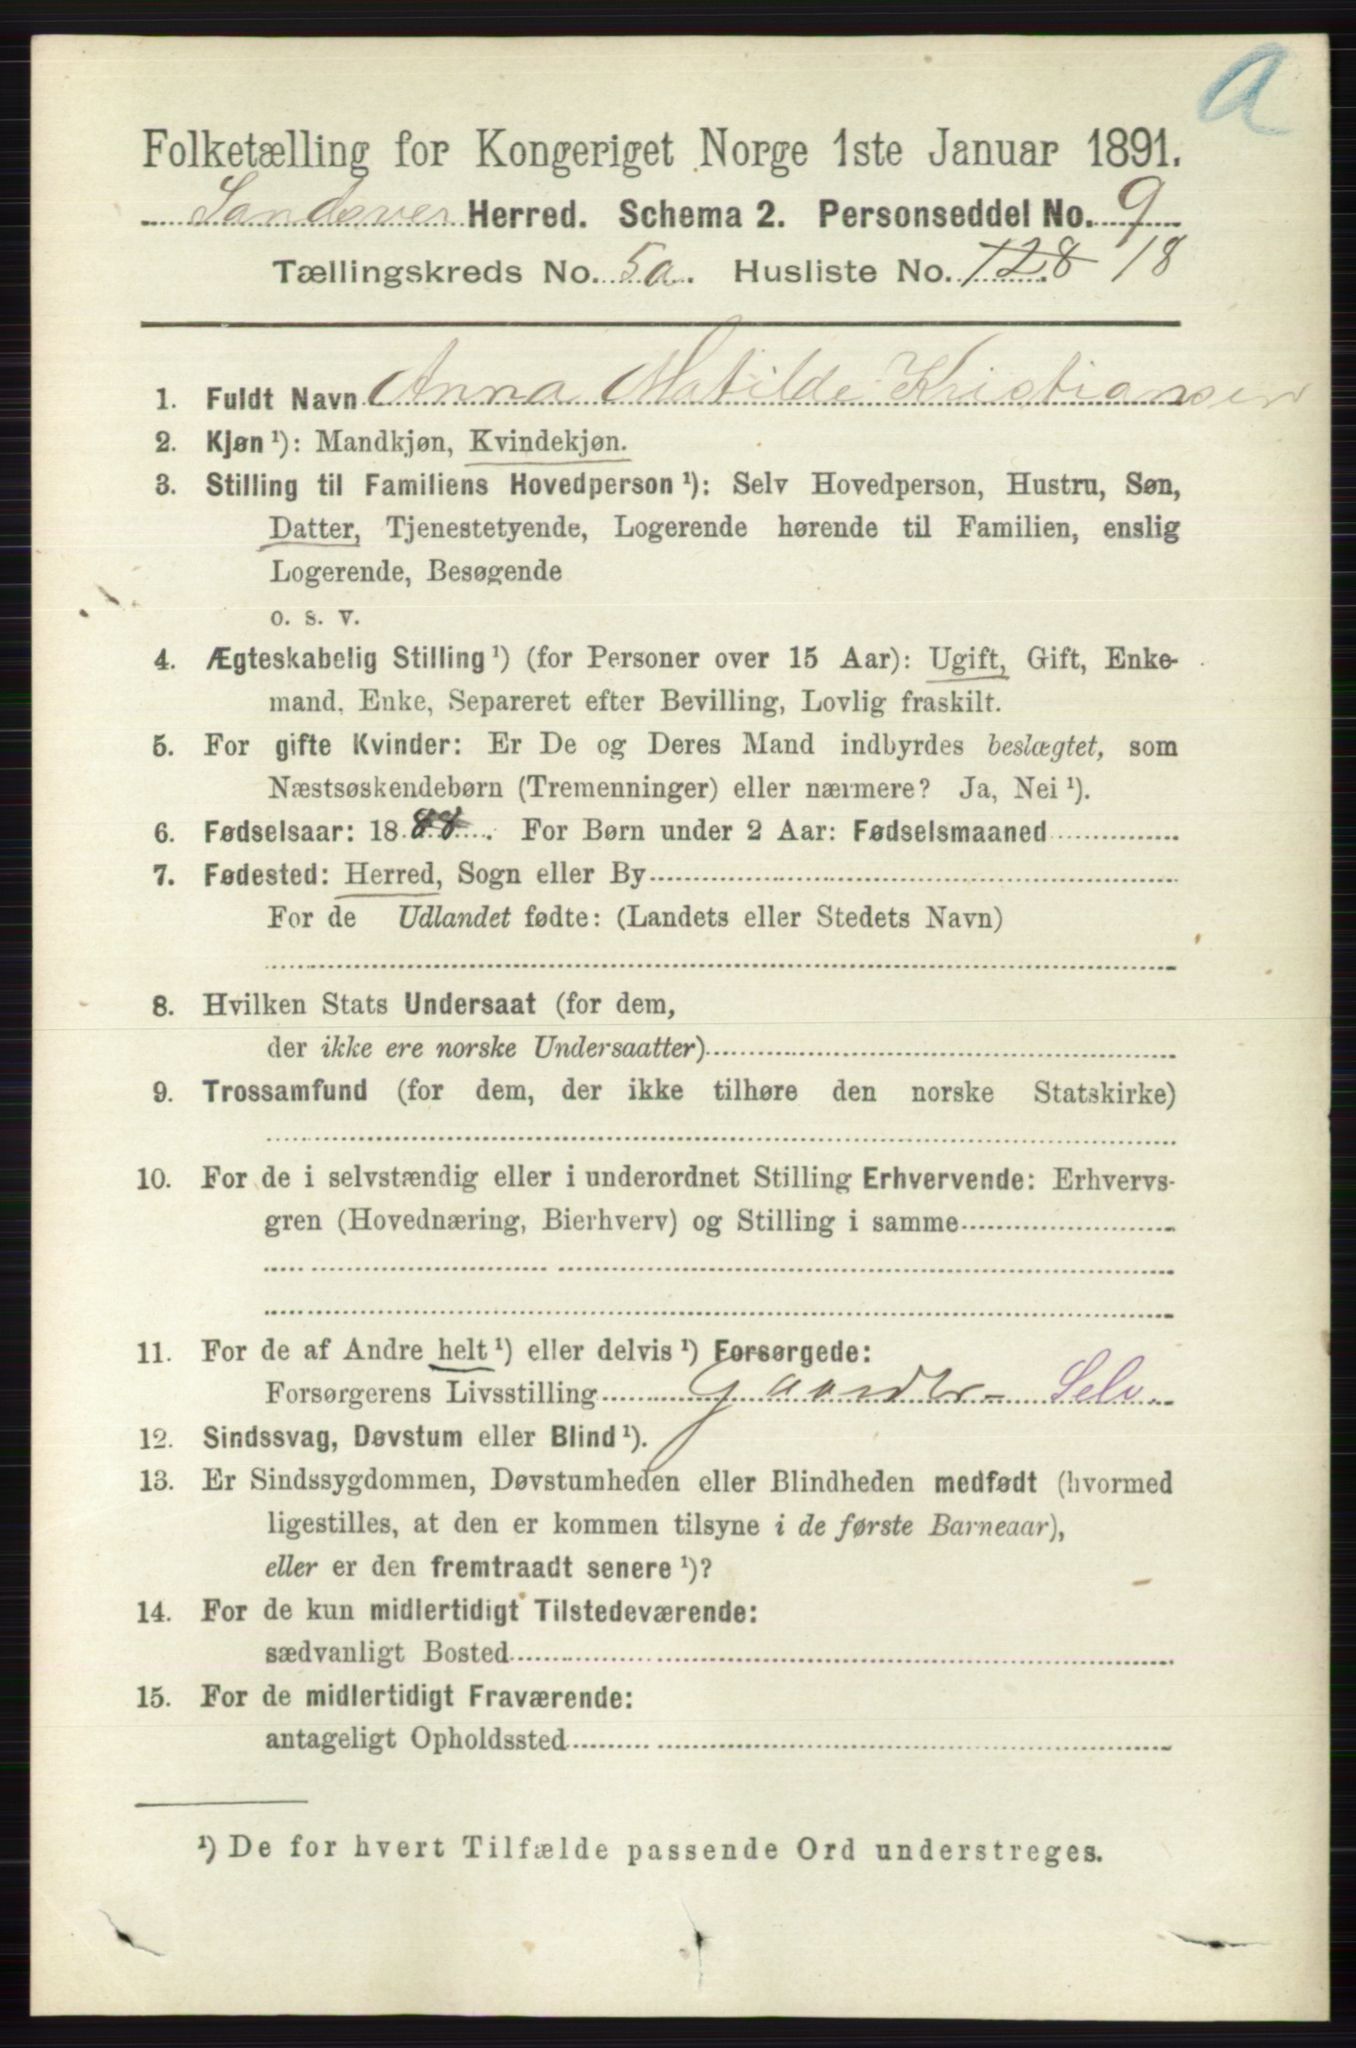 a
Folketælling for Kongeriget Norge 1ste Januar 1891.
Sandsver Herred. Schema 2. Personseddel No. 9
Tællingskreds No. 5a. Husliste No. 128 18
1. Fuldt Navn Anna Matilde Kristiansen
2. Kjøn ¹): Mandkjøn, Kvindekjøn.
3. Stilling til Familiens Hovedperson ¹): Selv Hovedperson, Hustru, Søn,
Datter, Tjenestetyende, Logerende hørende til Familien, enslig
Logerende, Besøgende
o. s. v.
4. Ægteskabelig Stilling ¹) (for Personer over 15 Aar): Ugift, Gift, Enke-
mand, Enke, Separeret efter Bevilling, Lovlig fraskilt.
5. For gifte Kvinder: Er De og Deres Mand indbyrdes beslægtet, som
Næstsøskendebørn (Tremenninger) eller nærmere? Ja, Nei ¹).
6. Fødselsaar: 1888. For Børn under 2 Aar: Fødselsmaaned
7. Fødested: Herred, Sogn eller By
For de Udlandet fødte: (Landets eller Stedets Navn)
8. Hvilken Stats Undersaat (for dem,
der ikke ere norske Undersaatter)
9. Trossamfund (for dem, der ikke tilhøre den norske Statskirke)
10. For de i selvstændig eller i underordnet Stilling Erhvervende: Erhvervs-
gren (Hovednæring, Bierhverv) og Stilling i samme
11. For de af Andre helt ¹) eller delvis ¹) Forsørgede:
Forsørgerens Livsstilling Gaardbr- Selv.
12. Sindssvag, Døvstum eller Blind ¹).
13. Er Sindssygdommen, Døvstumheden eller Blindheden medfødt (hvormed
ligestilles, at den er kommen tilsyne i de første Barneaar),
eller er den fremtraadt senere ¹)?
14. For de kun midlertidigt Tilstedeværende:
sædvanligt Bosted
15. For de midlertidigt Fraværende:
antageligt Opholdssted
¹) De for hvert Tilfælde passende Ord understreges.